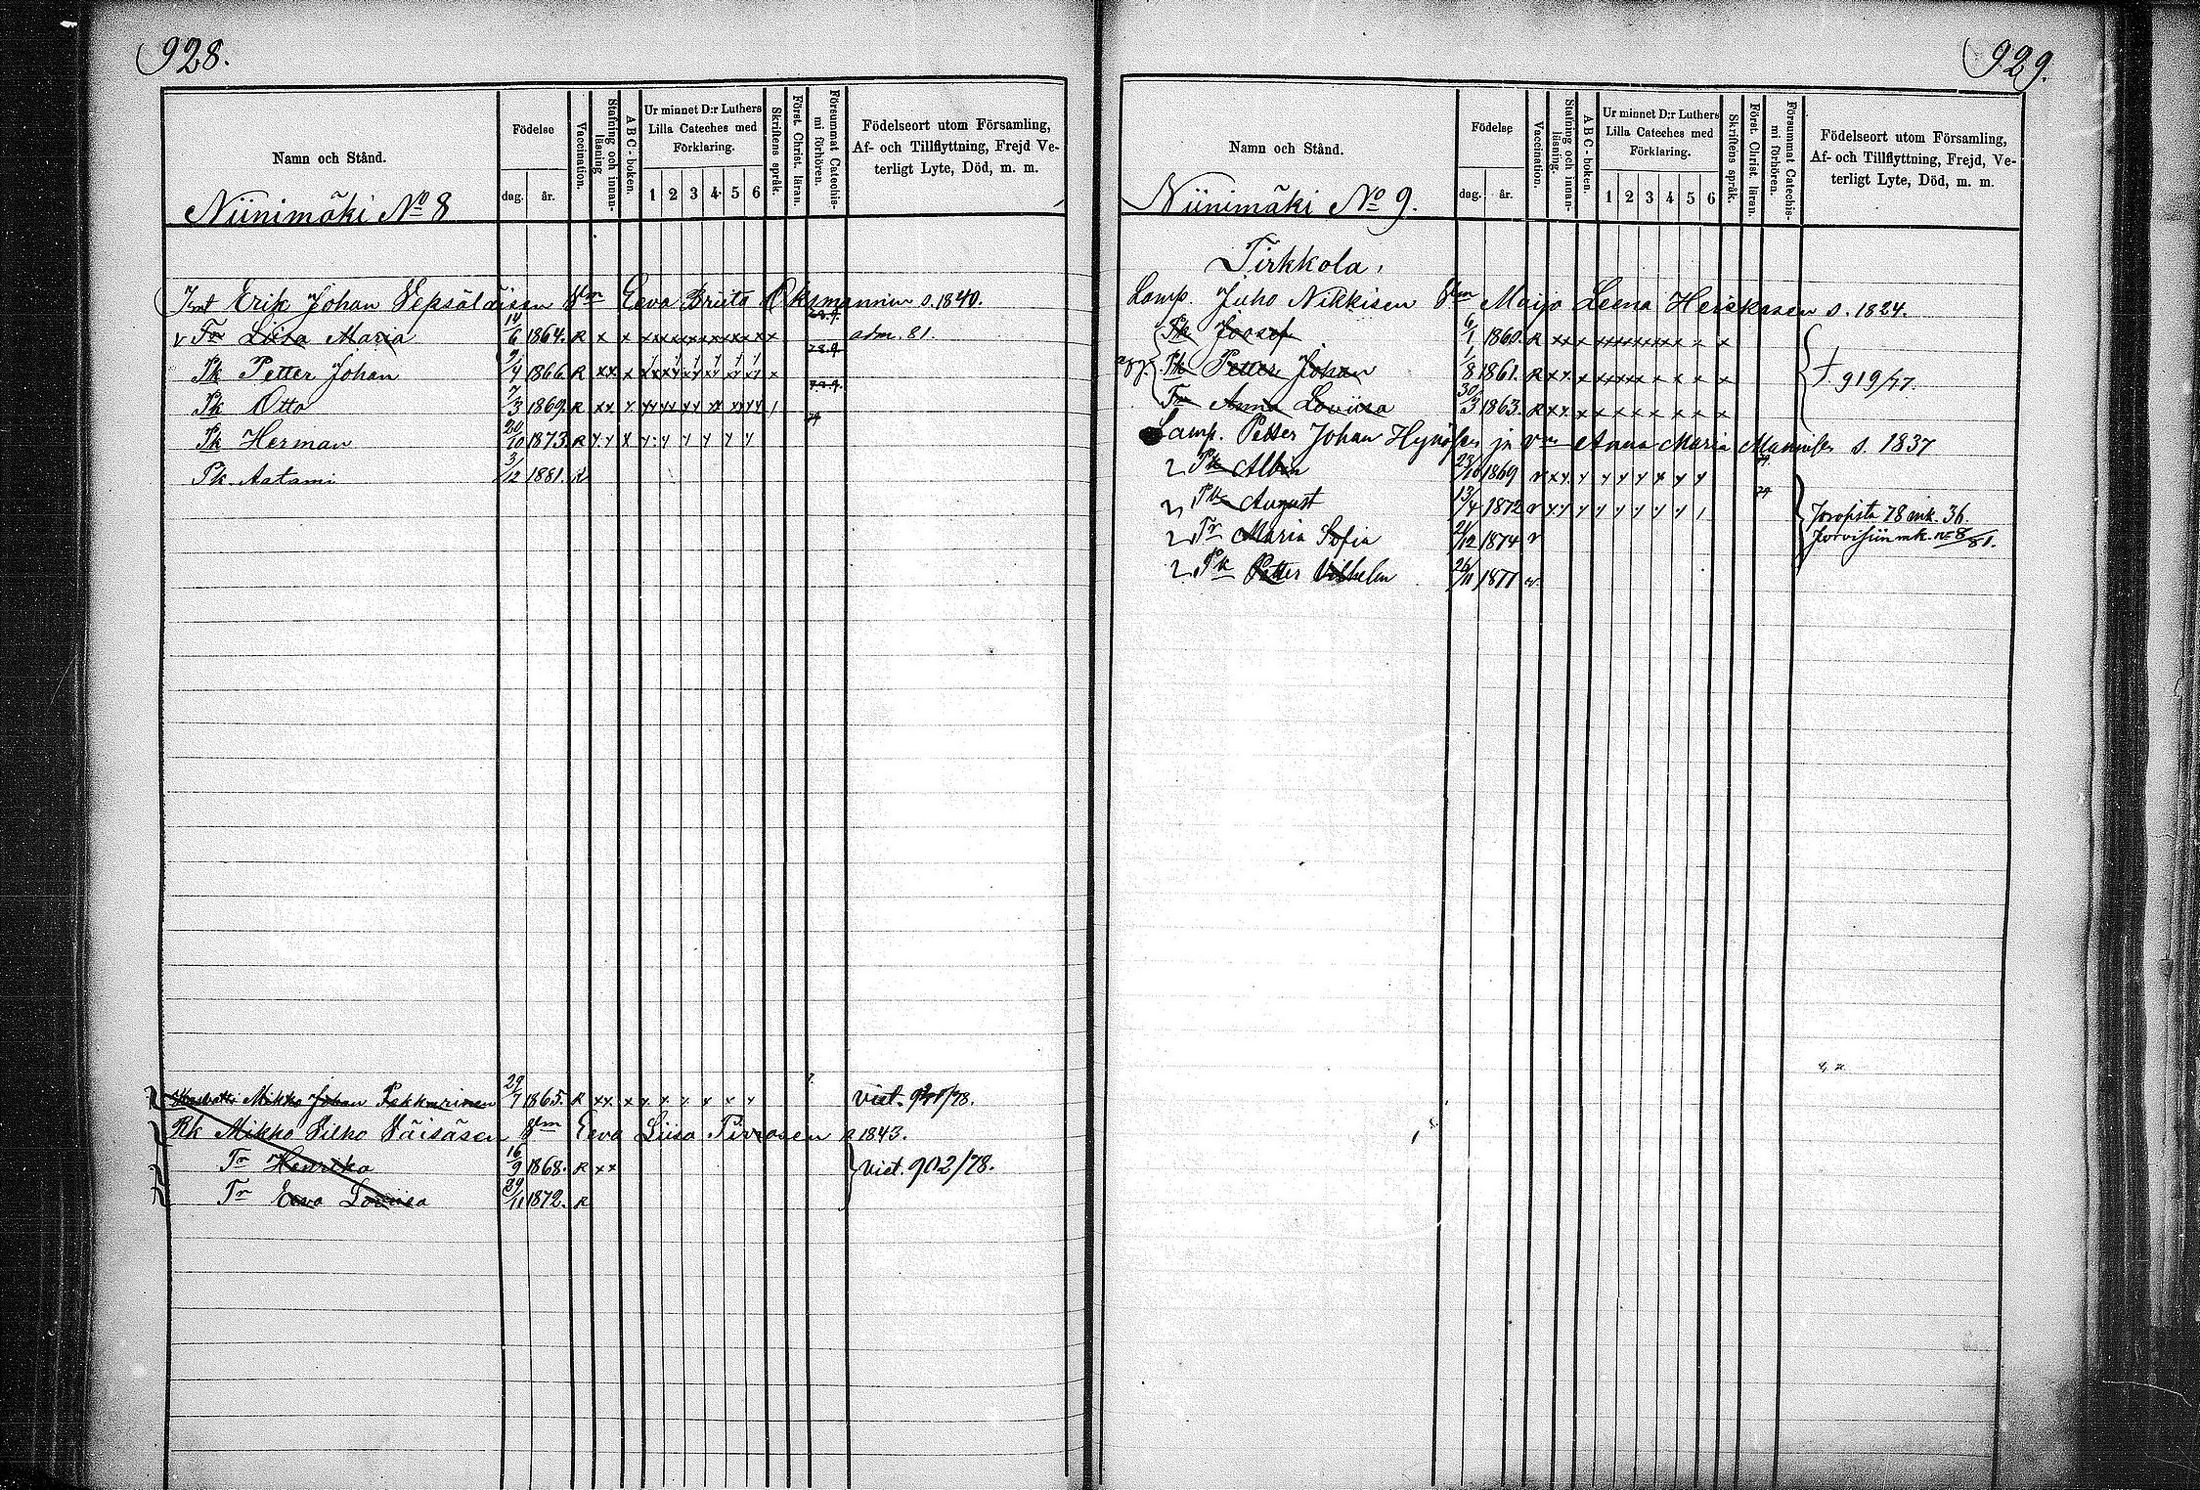 928.
Namn och Stånd.
Födelse
dag. år.
Vaccination.
Stafning och innan-
läsning
A B C - boken.
Ur minnet D:r Luthers
Lilla Cateches med
Förklaring.
1 2 3 4 5 6
Skriftens språk.
Först. Christ. läran.
Försummat Catechis-
mi förhören.
Födelseort utom Församling,
Af- och Tillflyttning, Frejd Ve-
terligt Lyte, Död, m. m.
Niinimäki No 8
Erik Johan Vepsäläisen Eeva Briita Oksmannin s. 1840.
v Tr Liisa Maria 14/6 1864. R x x adm. 81.
Pk Petter Johan 9/4 1866. R xx x
Pk Otto 7/3 1869. R
Pk Herman 20/10 1873. R
Pk Aatami 3/12 1881. R
Mikko Johan Pekkarinen 29/7 1865. R xx x viet. /78.
Rk Mikko Vilho Väisäsen Eeva Liisa s 1843.
Tr Henrika 16/9 1868. R xx viet. 902/78.
Tr Eeva Loviisa 29/11 1872. R
929.
Namn och Stånd.
Födelse
dag. år.
Vaccination.
Stafning och innan-
läsning.
A B C - boken.
Ur minnet D:r Luthers
Lilla Cateches med
Förklaring.
1 2 3 4 5 6
Skriftens språk.
Först. Christ. läran.
Försummat Catechis-
mi förhören.
Födelseort utom Församling,
Af- och Tillflyttning, Frejd, Ve-
terligt Lyte, Död, m. m.
Niinimäki No 9.
Tirkkola.
Lamp. Juho Nikkisen Maija Leena Heiskasen s. 1824.
Pk Joosef 6/1 1860. R
Pk Petter Johan 1/8 1861. R 919/77.
Tr Anna Loviisa 30/3 1863. R
Lamp. Petter Johan ja Anna Maria s. 1837
Pk Albin 1869
Pk August 13/4 1872
Tr Maria Sofia 1874
Pk Petter Vilhelm 26/11 1877